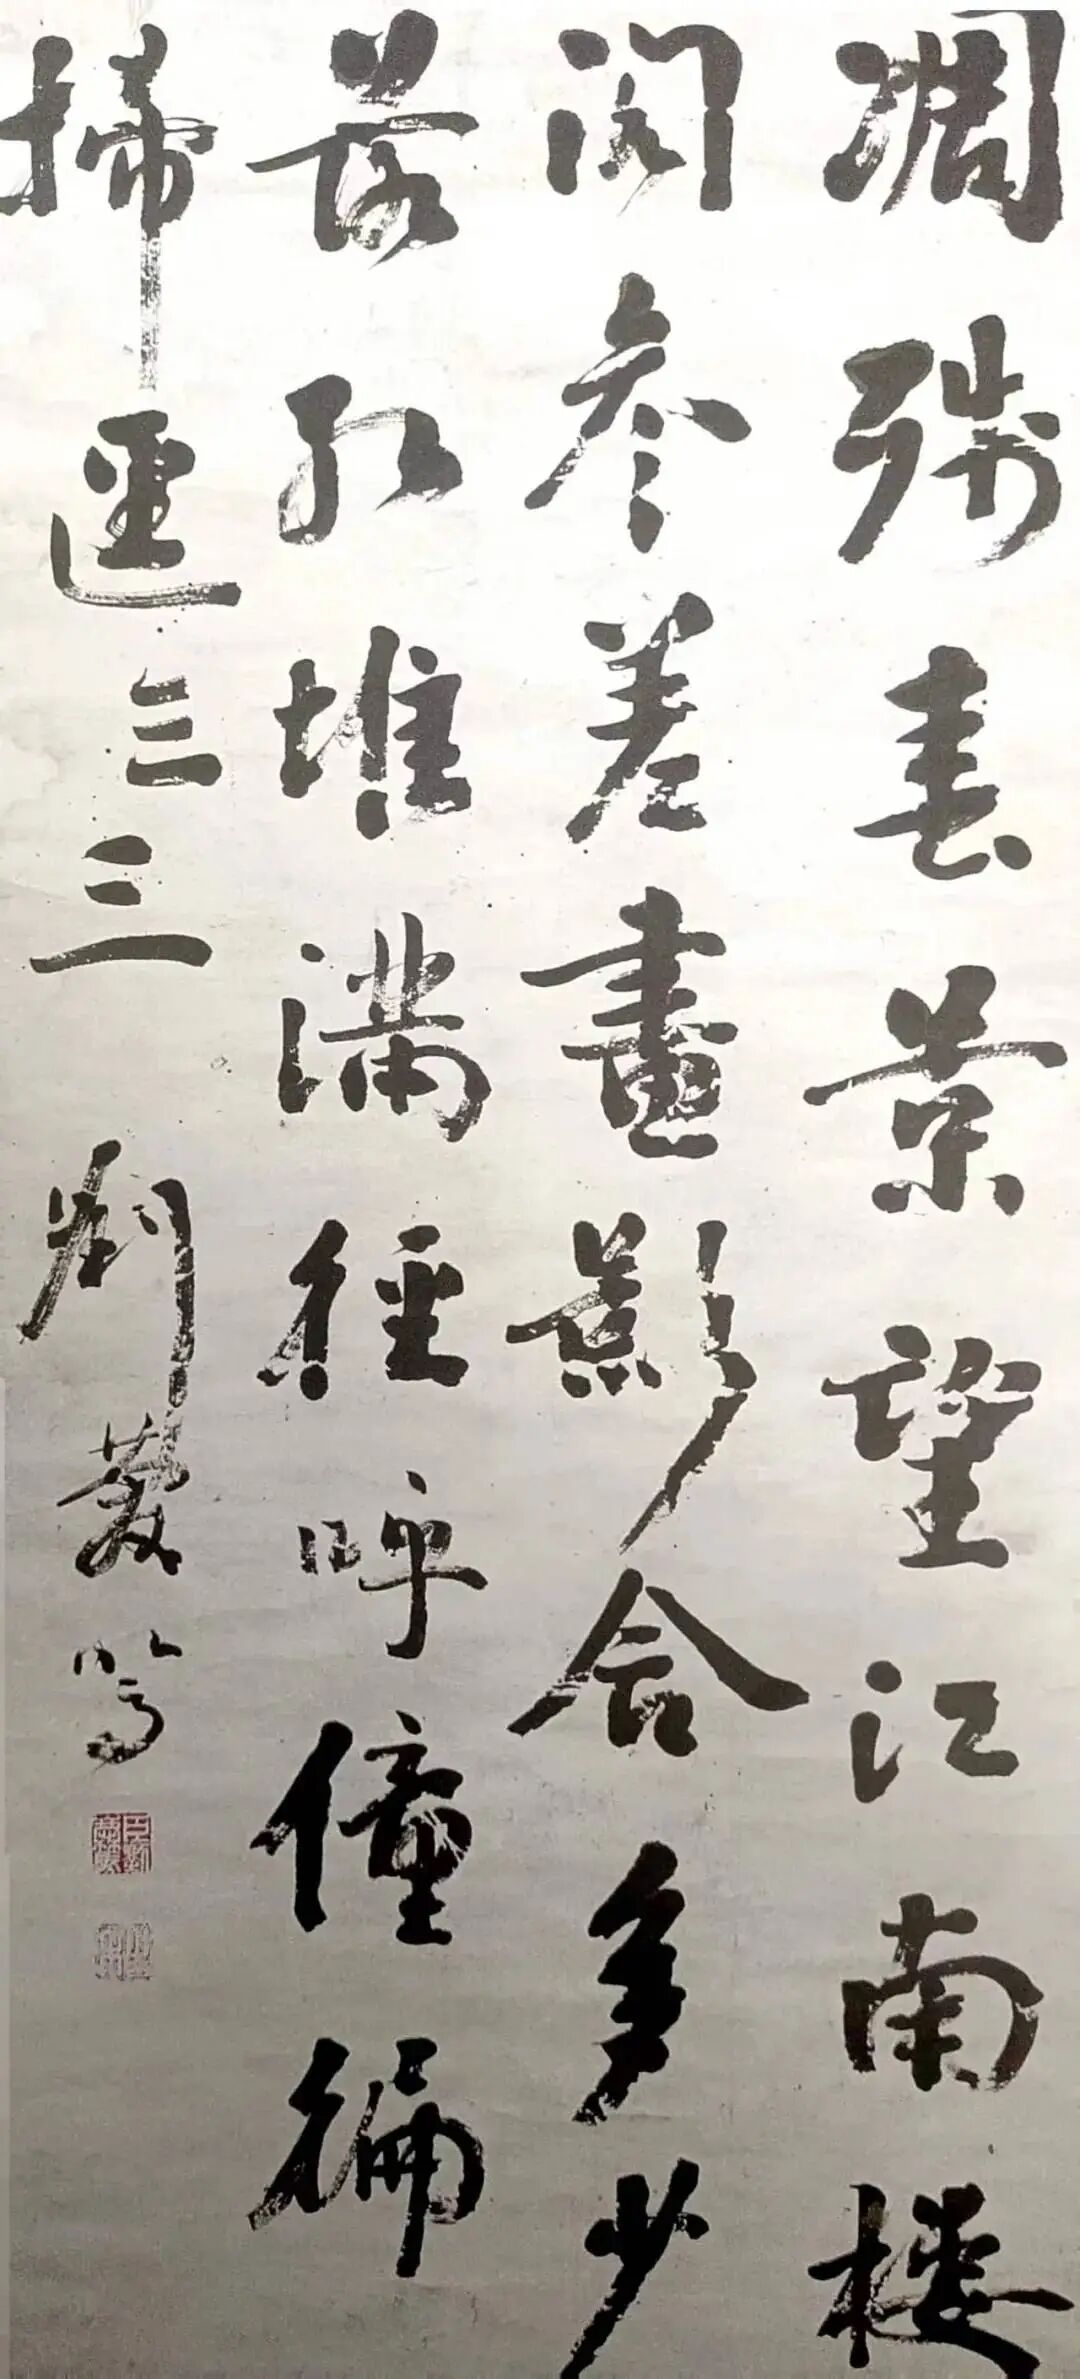 凋殘春景望江南樓
閣參差畫影含多少
落紅堆滿徑呼僮徧
掃逕三三 劉